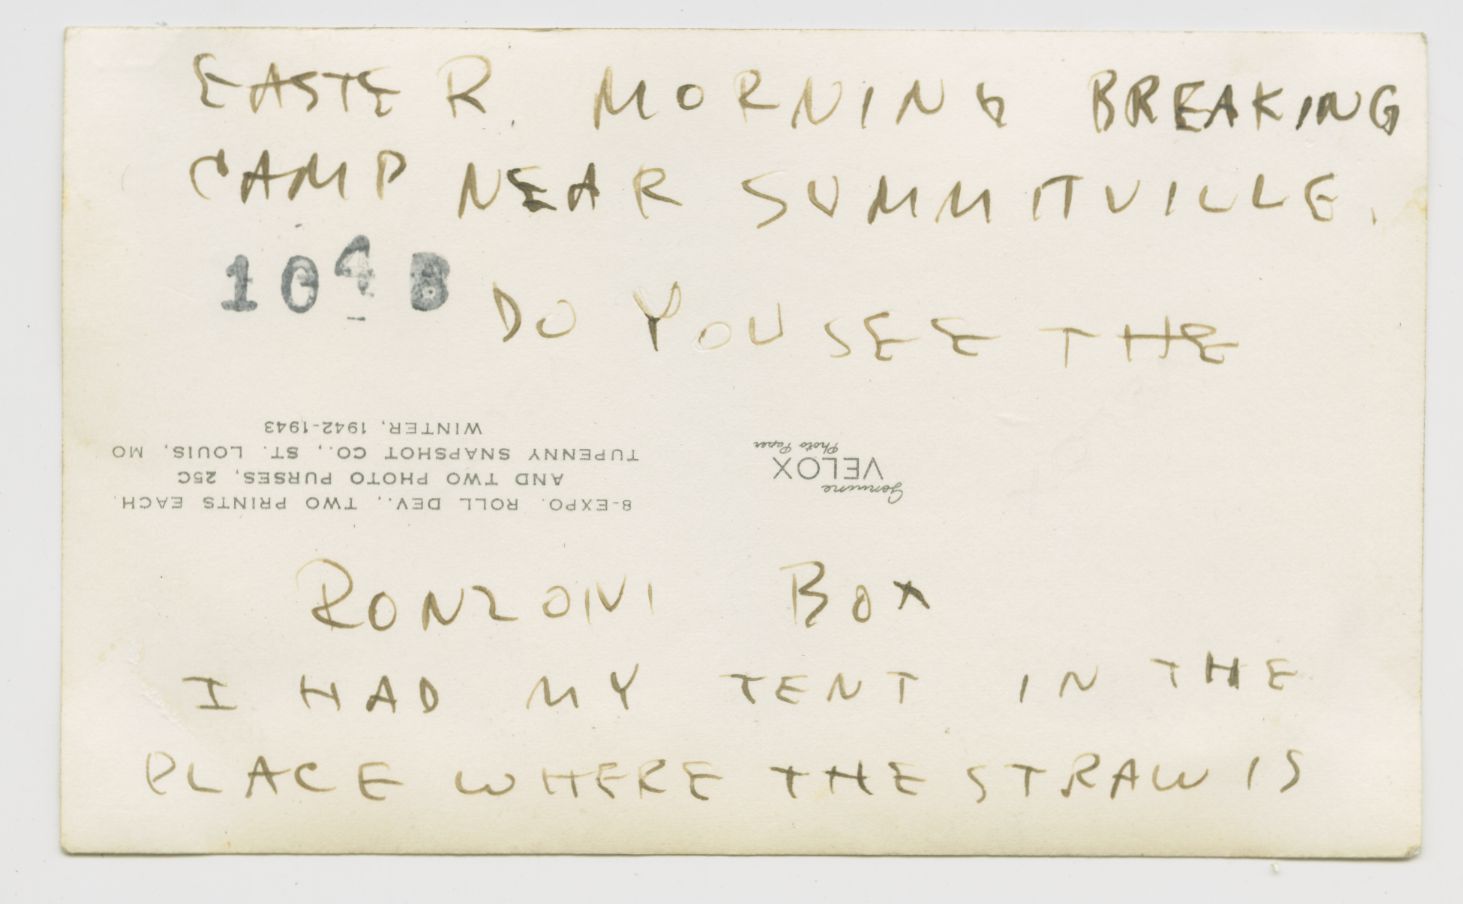 EASTER MORNING BREAKING
CAMP NEAR SUMMITVILLE.
DO YOU SEE THE
WINTER, 1942-1943
TUPENNY SNAPSHOT CO., ST. LOUIS, MO
AND TWO PHOTO PURSES, 25C
8-EXPO. ROLL DEV., TWO PRINTS EACH,
Genuine
VELOX
Photo Paper
RONZONI BOX
I HAD MY TENT IN THE
PLACE WHERE THE STRAW IS